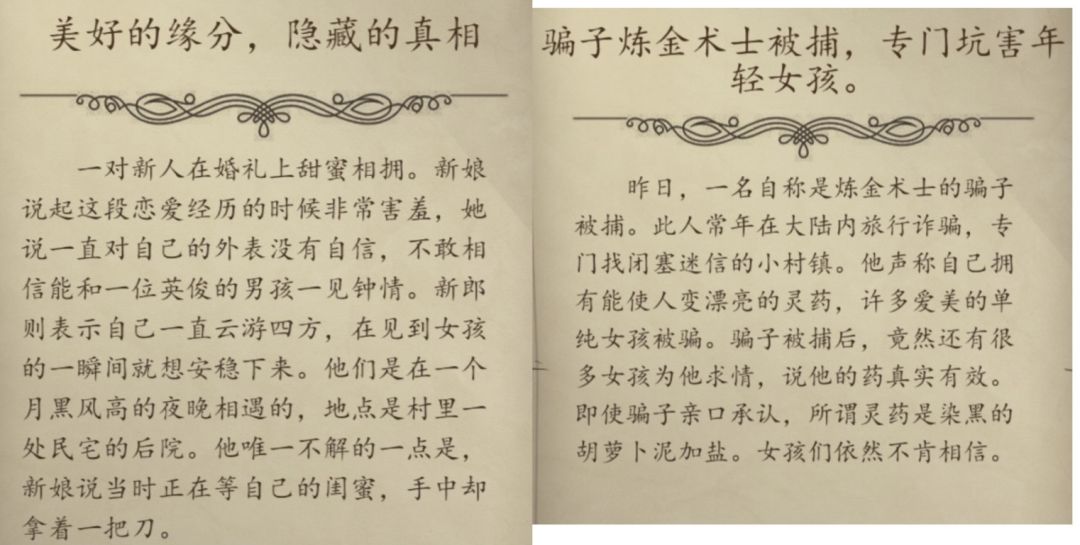 美好的缘分，隐藏的真相
一对新人在婚礼上甜蜜相拥。新娘
说起这段恋爱经历的时候非常害羞，她
说一直对自己的外表没有自信，不敢相
信能和一位英俊的男孩一见钟情。新郎
则表示自己一直云游四方，在见到女孩
的一瞬间就想安稳下来。他们是在一个
月黑风高的夜晚相遇的，地点是村里一
处民宅的后院。他唯一不解的一点是，
新娘说当时正在等自己的闺蜜，手中却
拿着一把刀。
骗子炼金术士被捕，专门坑害年
轻女孩。
昨日，一名自称是炼金术士的骗子
被捕。此人常年在大陆内旅行诈骗，专
门找闭塞迷信的小村镇。他声称自己拥
有能使人变漂亮的灵药，许多爱美的单
纯女孩被骗。骗子被捕后，竟然还有很
多女孩为他求情，说他的药真实有效。
即使骗子亲口承认，所谓灵药是染黑的
胡萝卜泥加盐。女孩们依然不肯相信。